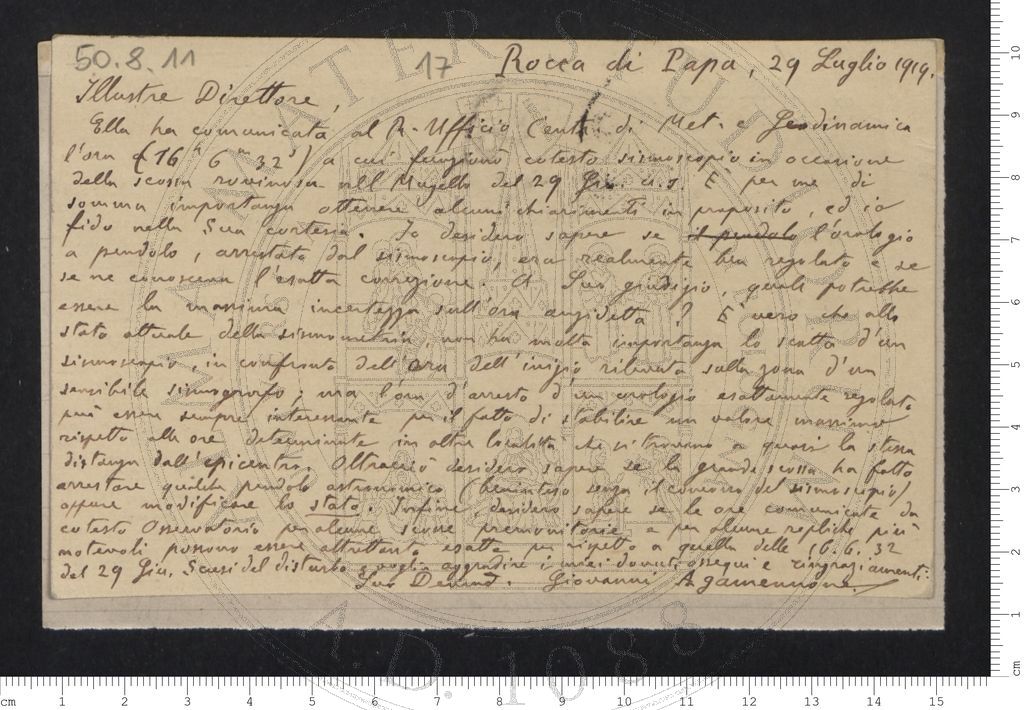 50.8.11
17
Rocca di Papa, 29 Luglio 1919.
Illustre Direttore,
Ella ha comunicata al R. Ufficio Centr. di Met. e Geodinamica
l'ora (16h 6m 32s) a cui funzionò cotesto sismoscopio in occasione
della scossa rovinosa nel Mugello del 29 Giu. u.s. È per me di
somma importanza ottenere alcuni chiarimenti in proposito, ed io
fido nella Sua cortesia. Io desidero sapere se il pendolo l'orologio
a pendolo, arrestato dal sismoscopio, era realmente ben regolato e se
se ne conosceva l'esatta correzione. A Suo giudizio, quale potrebbe
essere la massima incertezza sull'ora anzidetta? È vero che allo
stato attuale della sismometria, non ha molta importanza lo scatto d'un
sismoscopio, in confronto dell'ora dell'inizio rilevata sulla zona d'un
sensibile sismografo; ma l'ora d'arresto d'un orologio esattamente regolato
può essere sempre interessante per il fatto di stabilire un valore massimo
rispetto alle ore determinate in altre località che si trovano a quasi la stessa
distanza dall'epicentro. Oltracciò desidero sapere se la grande scossa ha fatto
arrestare qualche pendolo astronomico (beninteso senza il concorso del sismoscopio)
oppure modificare lo stato. Infine, desidero sapere se le ore comunicate da
cotesto Osservatorio per alcune scosse premonitorie e per alcune repliche più
notevoli possono essere altrettanto esatte per rispetto a quella delle 16.6.32
del 29 Giu. Scusi del disturbo e voglia aggradire i miei doverosi ossequi e ringraziamenti.
Suo Devmo. Giovanni Agamennone
ALMA MATER STUDIORUM
A.D. 1088
cm 1 2 3 4 5 6 7 8 9 10 11 12 13 14 15
cm 1 2 3 4 5 6 7 8 9 10